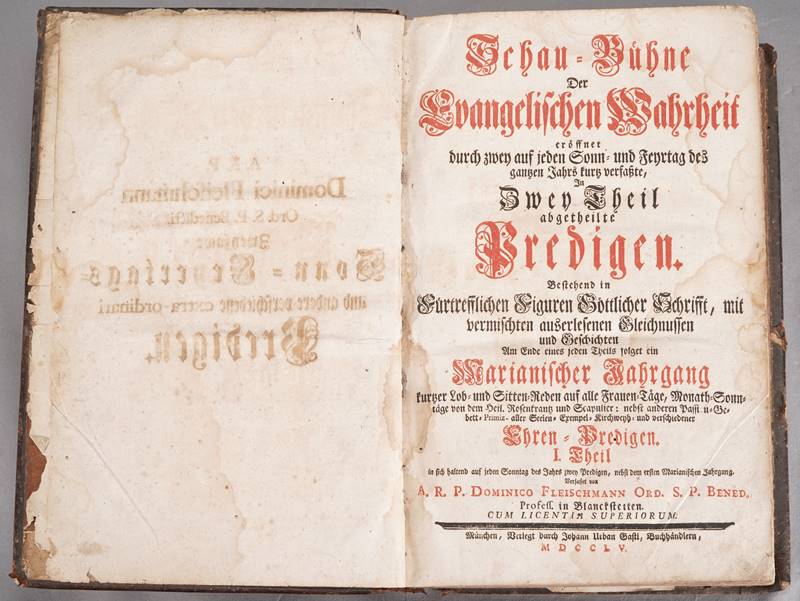 A. R. P.
Dominici Fleischmann
Ord. S. P. Benedicti.
Zweyfache
Sonn- Feyertags-
und andere verschiedene extra-ordinari
Predigen.
Schau-Bühne
Der
Evangelischen Wahrheit
eröffnet
durch zwey auf jeden Sonn- und Feyrtag des
gantzen Jahrs kurtz verfaßte,
In
Zwey Theil
abgetheilte
Predigen.
Bestehend in
Fürtrefflichen Figuren Göttlicher Schrifft, mit
vermischten auserlesenen Gleichnussen
und Geschichten
Am Ende eines jeden Theils folget ein
Marianischer Jahrgang
kurtzer Lob- und Sitten-Reden auf alle Frauen-Täge, Monath-Sonn-
täge von dem Heil. Rosenkrantz und Scapulier: nebst anderen Passi n-Ge-
bett- Primiz- aller Seelen- Exempel- Kirchweyh- und verschiedener
Ehren-Predigen.
I. Theil
in sich haltend auf jeden Sonntag des Jahrs zwey Predigen, nebst dem ersten Marianischen Jahrgang.
Verfasset von
A. R. P. DOMINICO FLEISCHMANN ORD. S. P. BENED.
Profess. in Blanckstetten.
CUM LICENTIA SUPERIORUM.
München, Verlegt durch Johann Urban Gastl, Buchhändlern,
MDCCLV.